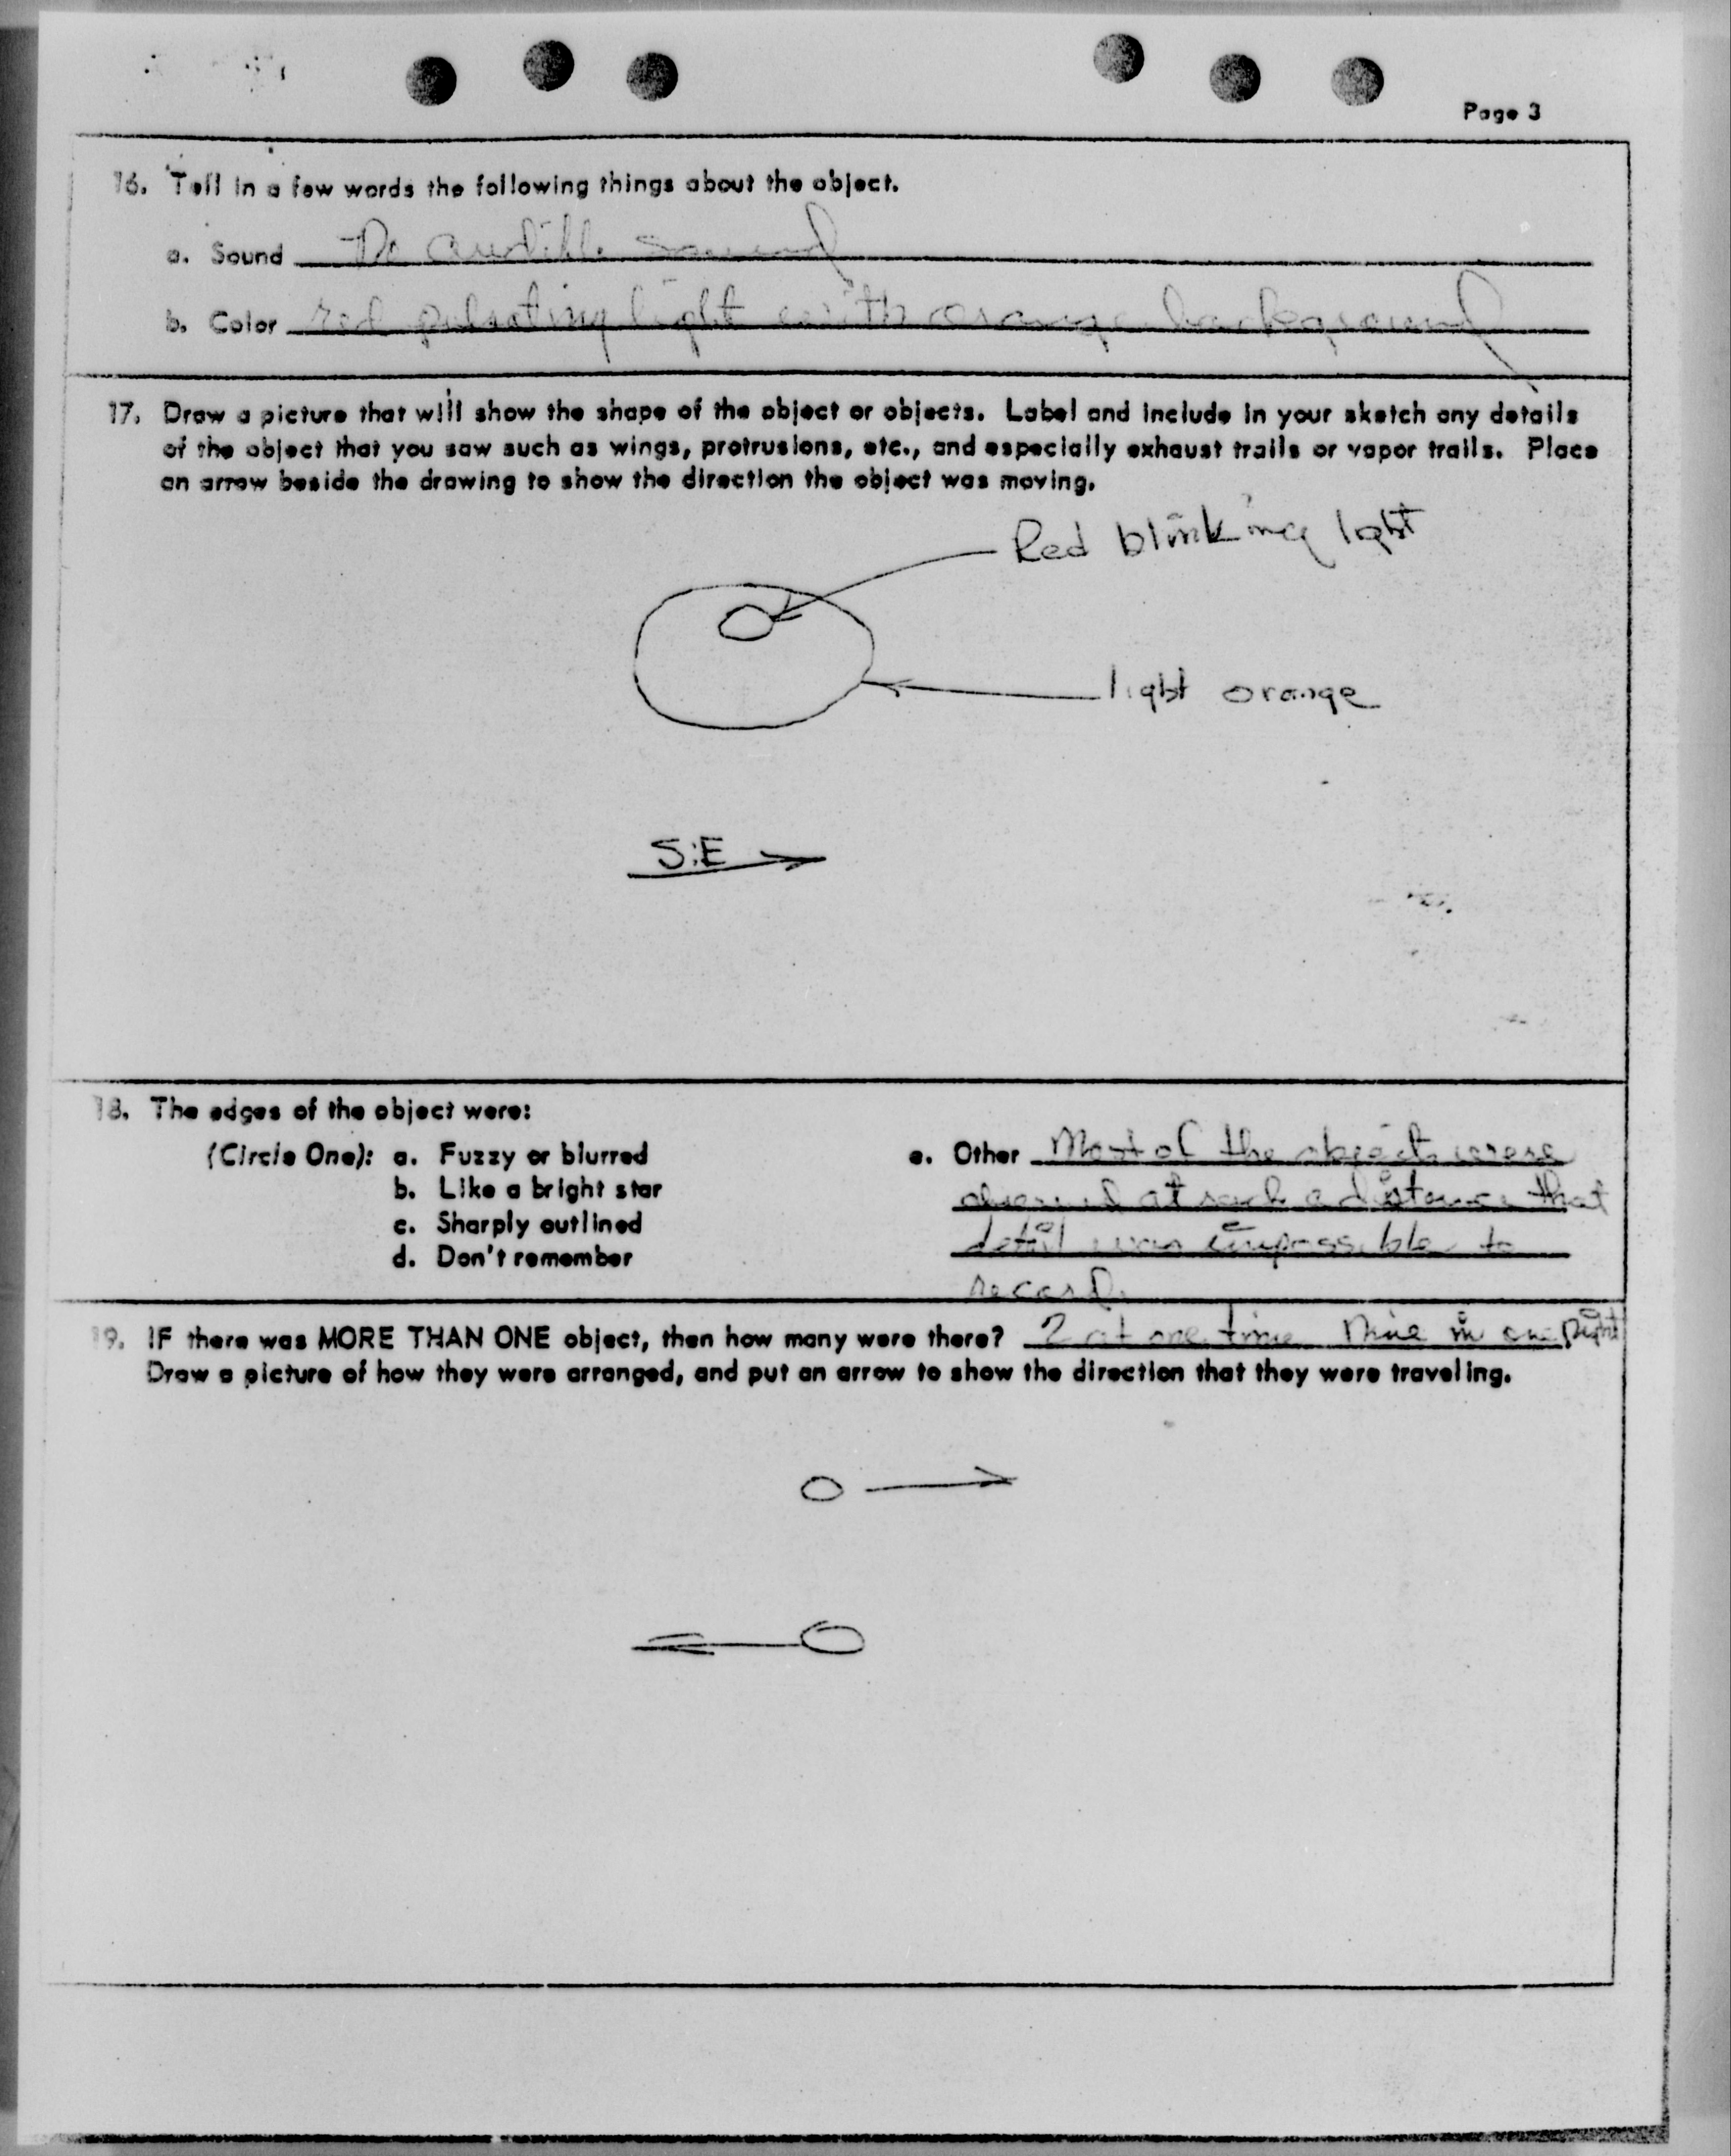 Page 3
16. Tell in a few words the following things about the object.
a. Sound No audible sound
b. Color red pulsating light with orange background
17. Draw a picture that will show the shape of the object or objects. Label and include in your sketch any details
of the object that you saw such as wings, protrusions, etc., and especially exhaust trails or vapor trails. Place
an arrow beside the drawing to show the direction the object was moving.
Red blinking light
light orange
S.E
18. The edges of the object were:
(Circle One): a. Fuzzy or blurred
b. Like a bright star
c. Sharply outlined
d. Don't remember
e. Other Most of the objects were
observed at such a distance that
detail was impossible to
record.
19. IF there was MORE THAN ONE object, then how many were there? 2 at one time Nine in one night
Draw a picture of how they were arranged, and put an arrow to show the direction that they were traveling.